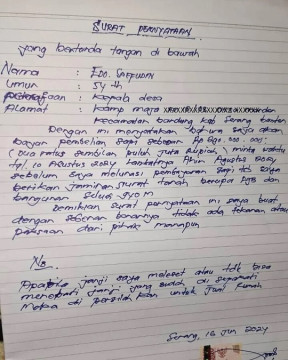 SURAT PERNYATAAN
yang bertanda tangan di bawah
Nama : EDO. SAEPUDIN
Umur : 54 th
: Kepala desa
Alamat : Kamp maja
Kecamatan bandung kab Serang banten
Dengan ini menyatakan bahwa saya akan
bayar pembelian sapi sebesar Rp 290.000.000;
(Dua ratus sembilan puluh juta Rupiah) minta waktu
tgl 10 Agustus 2024 Akhir Agustus 2024
sebelum saya melunasi pembayaran sapi tsb saya
berikan jaminan surat tanah berupa AJB dan
bangunan
Demikian surat pernyataan ini saya buat
dengan sebenar benarnya tidak ada tekanan atau
paksaan dari pihak manapun
Nb.
Apabila janji saya meleset atau tdk bisa
menepati janji yang sudah di sepakati
Maka di persilahkan untuk jual rumah
Serang, 16 Jun 2024